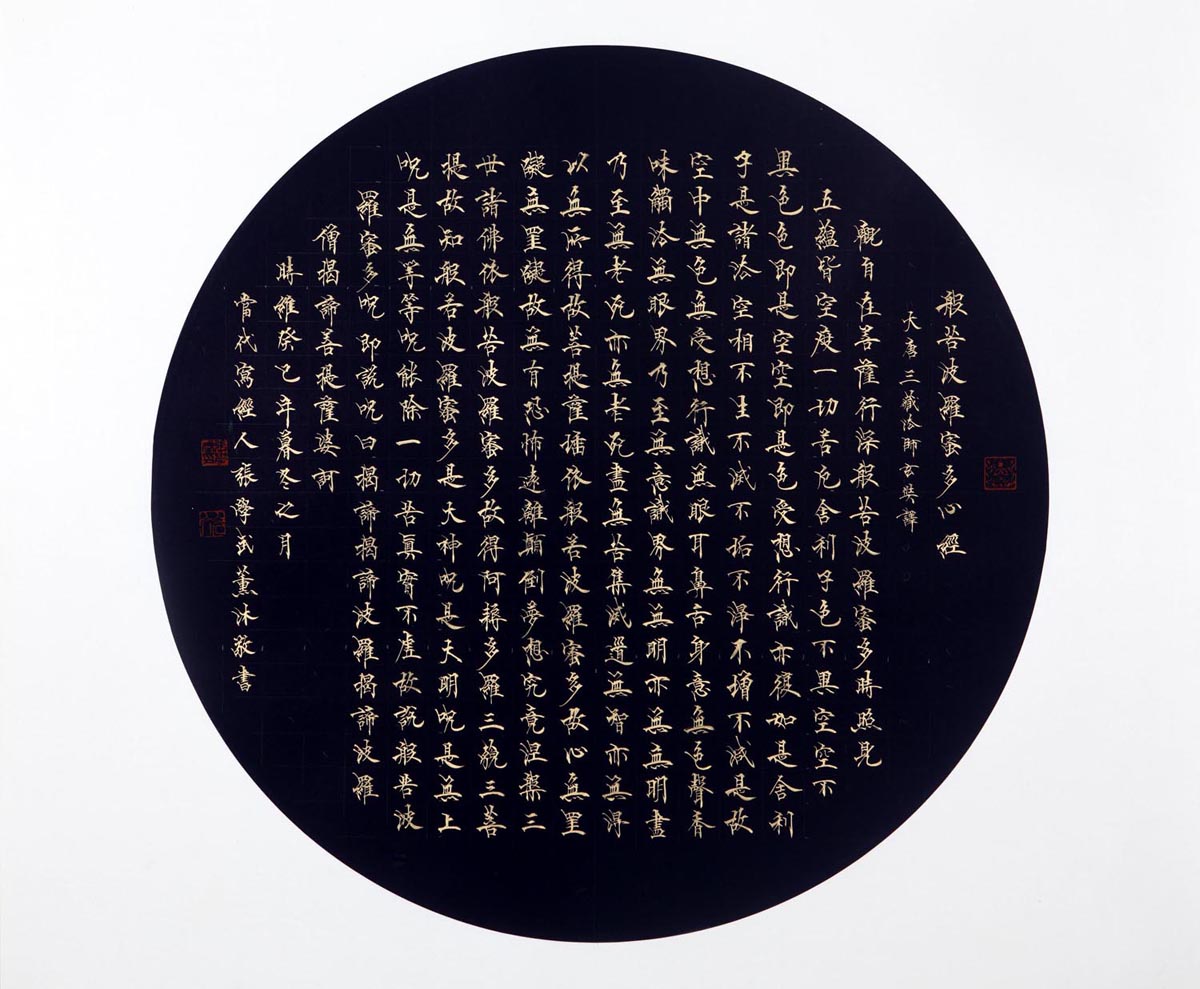 般若波羅蜜多心經
大唐三藏法師玄奘譯
觀自在菩薩行深般若波羅蜜多時照見
五蘊皆空度一切苦厄舍利子色不異空空不
異色色即是空空即是色受想行識亦復如是舍利
子是諸法空相不生不滅不垢不淨不增不減是故
空中無色無受想行識無眼耳鼻舌身意無色聲香
味觸法無眼界乃至無意識界無無明亦無無明盡
乃至無老死亦無老死盡無苦集滅道無智亦無得
以無所得故菩提薩埵依般若波羅蜜多故心無罣
礙無罣礙故無有恐怖遠離顛倒夢想究竟涅槃三
世諸佛依般若波羅蜜多故得阿耨多羅三藐三菩
提故知般若波羅蜜多是大神呪是大明呪是無上
呪是無等等呪能除一切苦真實不虛故說般若波
羅蜜多呪即說呪曰揭諦揭諦波羅揭諦波羅
僧揭諦菩提薩婆訶
時維癸巳年暮冬之月
當代寫經人張學武薰沐敬書